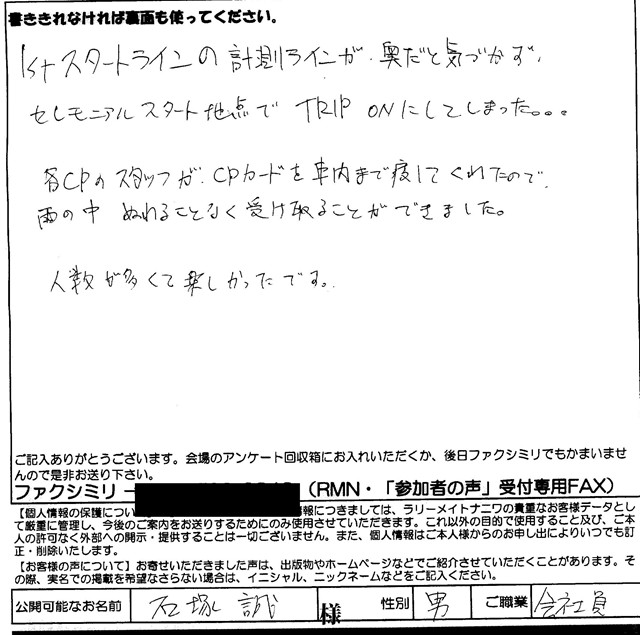 書ききれなければ裏面も使ってください。
1stスタートラインの計測ラインが、奥だと気づかず、
セレモニアルスタート地点で TRIP ONにしてしまった。。。
各CPのスタッフが、CPカードを車内まで渡してくれたので、
雨の中 ぬれることなく受け取ることができました。
人数が多くて楽しかったです。
ご記入ありがとうございます。会場のアンケート回収箱にお入れいただくか、後日ファクシミリでもかまいませ
んので是非お送り下さい。
ファクシミリ （RMN・「参加者の声」受付専用FAX）
【個人情報の保護につい 情報につきましては、ラリーメイトナニワの貴重なお客様データとし
て厳重に管理し、今後のご案内をお送りするためにのみ使用させていただきます。これ以外の目的で使用すること及び、ご本
人の許可なく外部への開示・提供することは一切ございません。また、個人情報はご本人様からのお申し出によりいつでも訂
正・削除いたします。
【お客様の声について】お寄せいただきました声は、出版物やホームページなどでご紹介させていただくことがあります。そ
の際、実名での掲載を希望なさらない場合は、イニシャル、ニックネームなどをご記入ください。
公開可能なお名前 石塚 誠 様 性別 男 ご職業 会社員